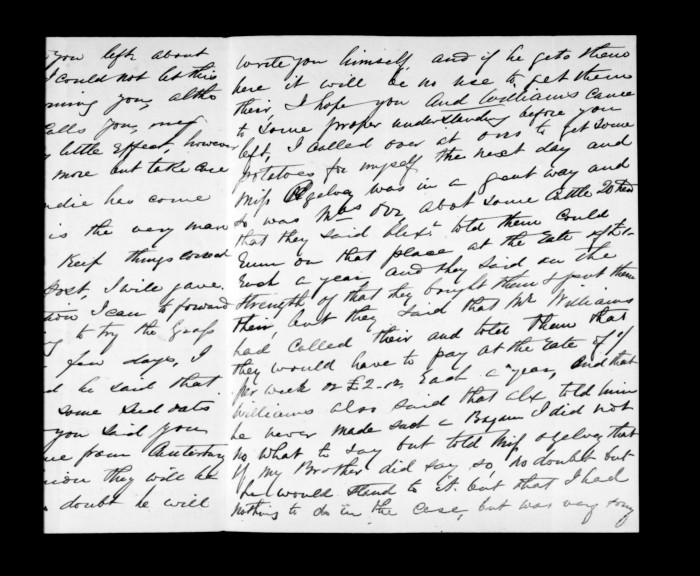 you left about
I could not let this
ming you, altho
calls you, may
little effect, however
more but take care
ndie has come
is the very man
Keep things correct
Post, I will gave
I can to forward
to try the Grass
few days, I
d he said that
some seed oats
you said you
me from Canterbury
nion they will be
doubt he will
write you himself, and if he gets them
here it will be no use to get them
their, I hope you and Williams came
to some proper understanding before you
left, I called over at ors to get some
potatoes for myself the next day and
Miss Ogelvey was in a great way and
so was Mrs Orr, about some Cattle 20 head
that they said Alex told them could
Runn on that place at the Rate of
Each a year and they said on the
strength of that they bought them & put them
their, but they said that Mr Williams
had called their and told them that
they would have to pay at the Rate of 1/
per week or £2.12 Each a year, and that
Williams also said that Alx told him
he never made such a Bargan I did not
no what to say but told Miss Ogelvey that
if my Brother did say so, no doubt but
he would stand to it. but that I had
nothing to do in the case, but was very sorry